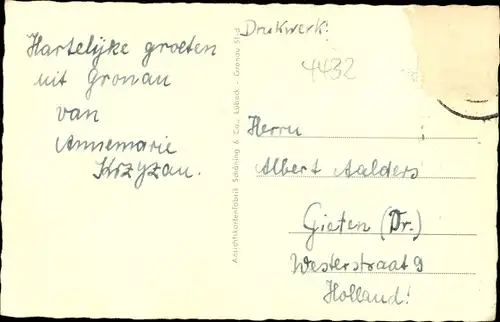 Hartelijke groeten
uit Gronau
van
Annemarie
Krzyzan.
Ansichtskartenfabrik Schöning & Co., Lübeck - Gronau
Drukwerk!
4432
Herrn
Albert Aalders
Gieten (Dr.)
Westerstraat 9
Holland!